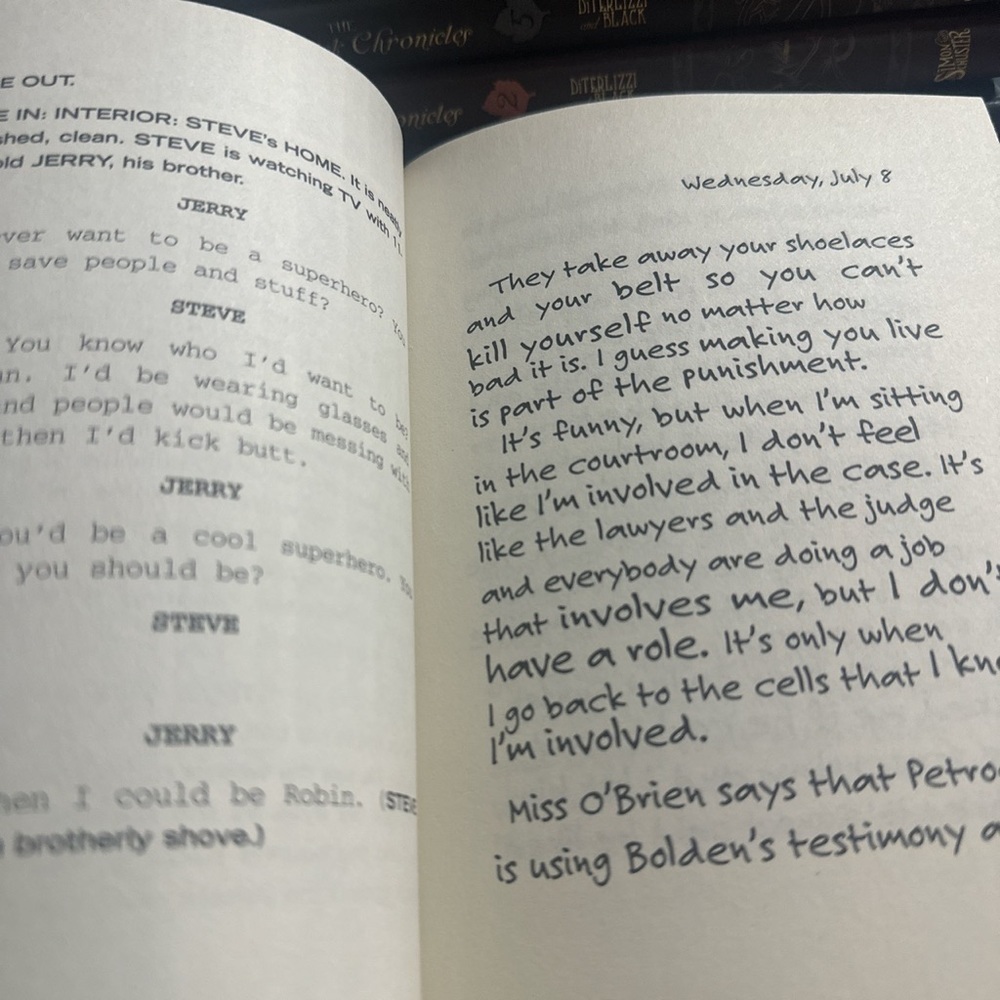 THE
Chronicles
5
DITERLIZZI
and BLACK
SIMON &
SCHUSTER
2
DITERLIZZI
BLACK
E OUT.
E IN: INTERIOR: STEVE's HOME. It is neatly
shed, clean. STEVE is watching TV with 11.
old JERRY, his brother.
JERRY
ver want to be a superhero? You
save people and stuff?
STEVE
You know who I'd want to be?
an. I'd be wearing glasses and
nd people would be messing with
then I'd kick butt.
JERRY
ou'd be a cool superhero. You
you should be?
STEVE
JERRY
hen I could be Robin. (STEVE
brotherly shove.)
Wednesday, July 8
They take away your shoelaces
and your belt so you can't
kill yourself no matter how
bad it is. I guess making you live
is part of the punishment.
It's funny, but when I'm sitting
in the courtroom, I don't feel
like I'm involved in the case. It's
like the lawyers and the judge
and everybody are doing a job
that involves me, but I don't
have a role. It's only when
I go back to the cells that I kno
I'm involved.
Miss O'Brien says that Petro
is using Bolden's testimony a